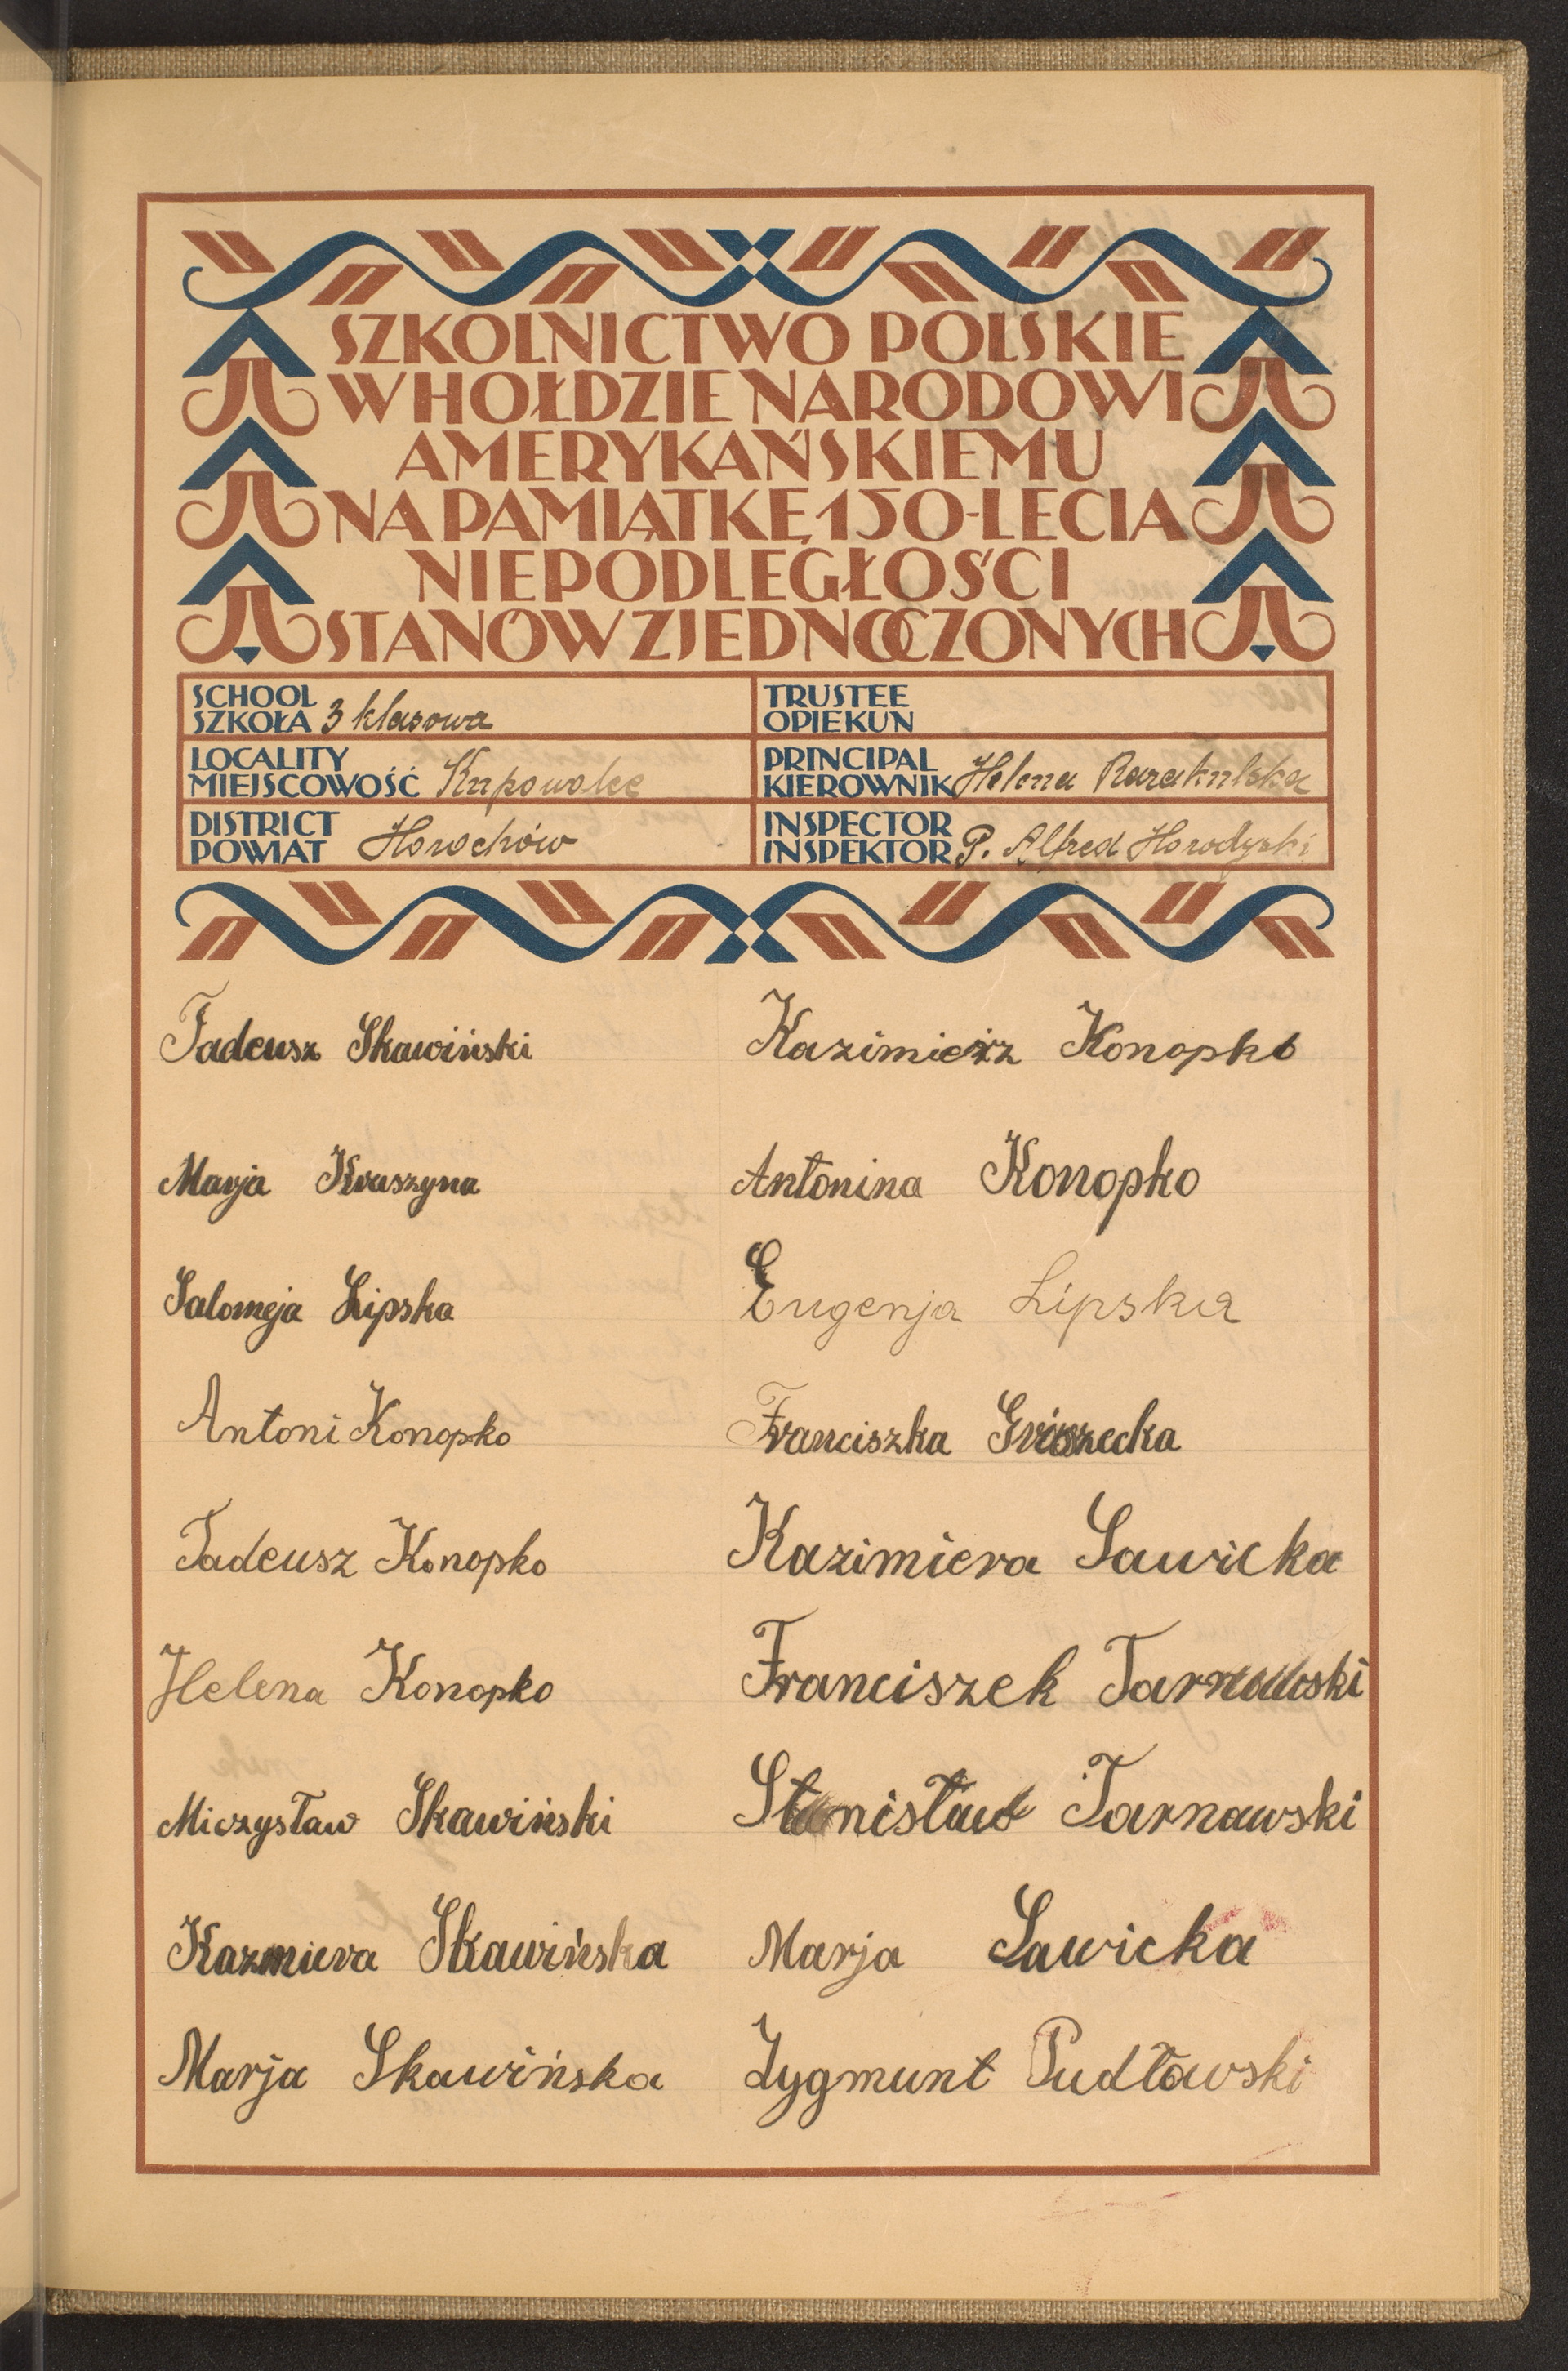 SZKOLNICTWO POLSKIE
W HOŁDZIE NARODOWI
AMERYKAŃSKIEMU
NA PAMIĄTKĘ 150-LECIA
NIEPODLEGŁOŚCI
STANÓW ZJEDNOCZONYCH
SCHOOL
SZKOŁA 3 klasowa
TRUSTEE
OPIEKUN
LOCALITY
MIEJSCOWOŚĆ Krpowalec
PRINCIPAL
KIEROWNIK Helena
DISTRICT
POWIAT Horochów
INSPECTOR
INSPEKTOR P. Alfred Horodyski
Tadeusz Skawiński
Marja Kraszyna
Salomeja Lipska
Antoni Konopko
Tadeusz Konopko
Helena Konopko
Miczysław Skawiński
Kazmiera Skawińska
Marja Skawińska
Kazimierz Konopko
Antonina Konopko
Eugenja Lipska
Franciszka
Kazimiera Sawicka
Franciszek Tarnawski
Stanisław Tarnawski
Marja Sawicka
Zygmunt Pudławski